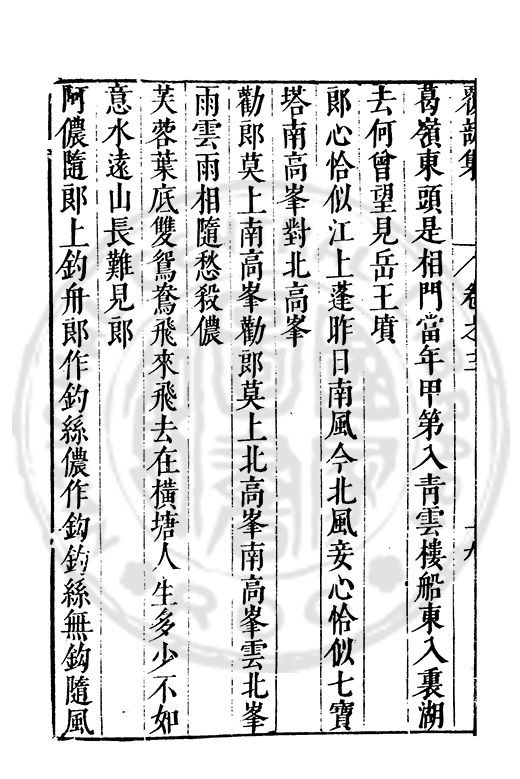 覆瓿集 卷之三 十九
葛嶺東頭是相門當年甲第入青雲樓船東入裏湖
去何曾望見岳王墳
郎心恰似江上蓬昨日南風今北風妾心恰似七寶
塔南高峯對北高峯
勸郎莫上南高峯勸郎莫上北高峯南高峯雲北峯
雨雲雨相隨愁殺儂
芙蓉葉底雙鴛鴦飛來飛去在橫塘人生多少不如
意水遠山長難見郎
阿儂隨郎上釣舟郎作釣絲儂作鈎釣絲無鈎隨風